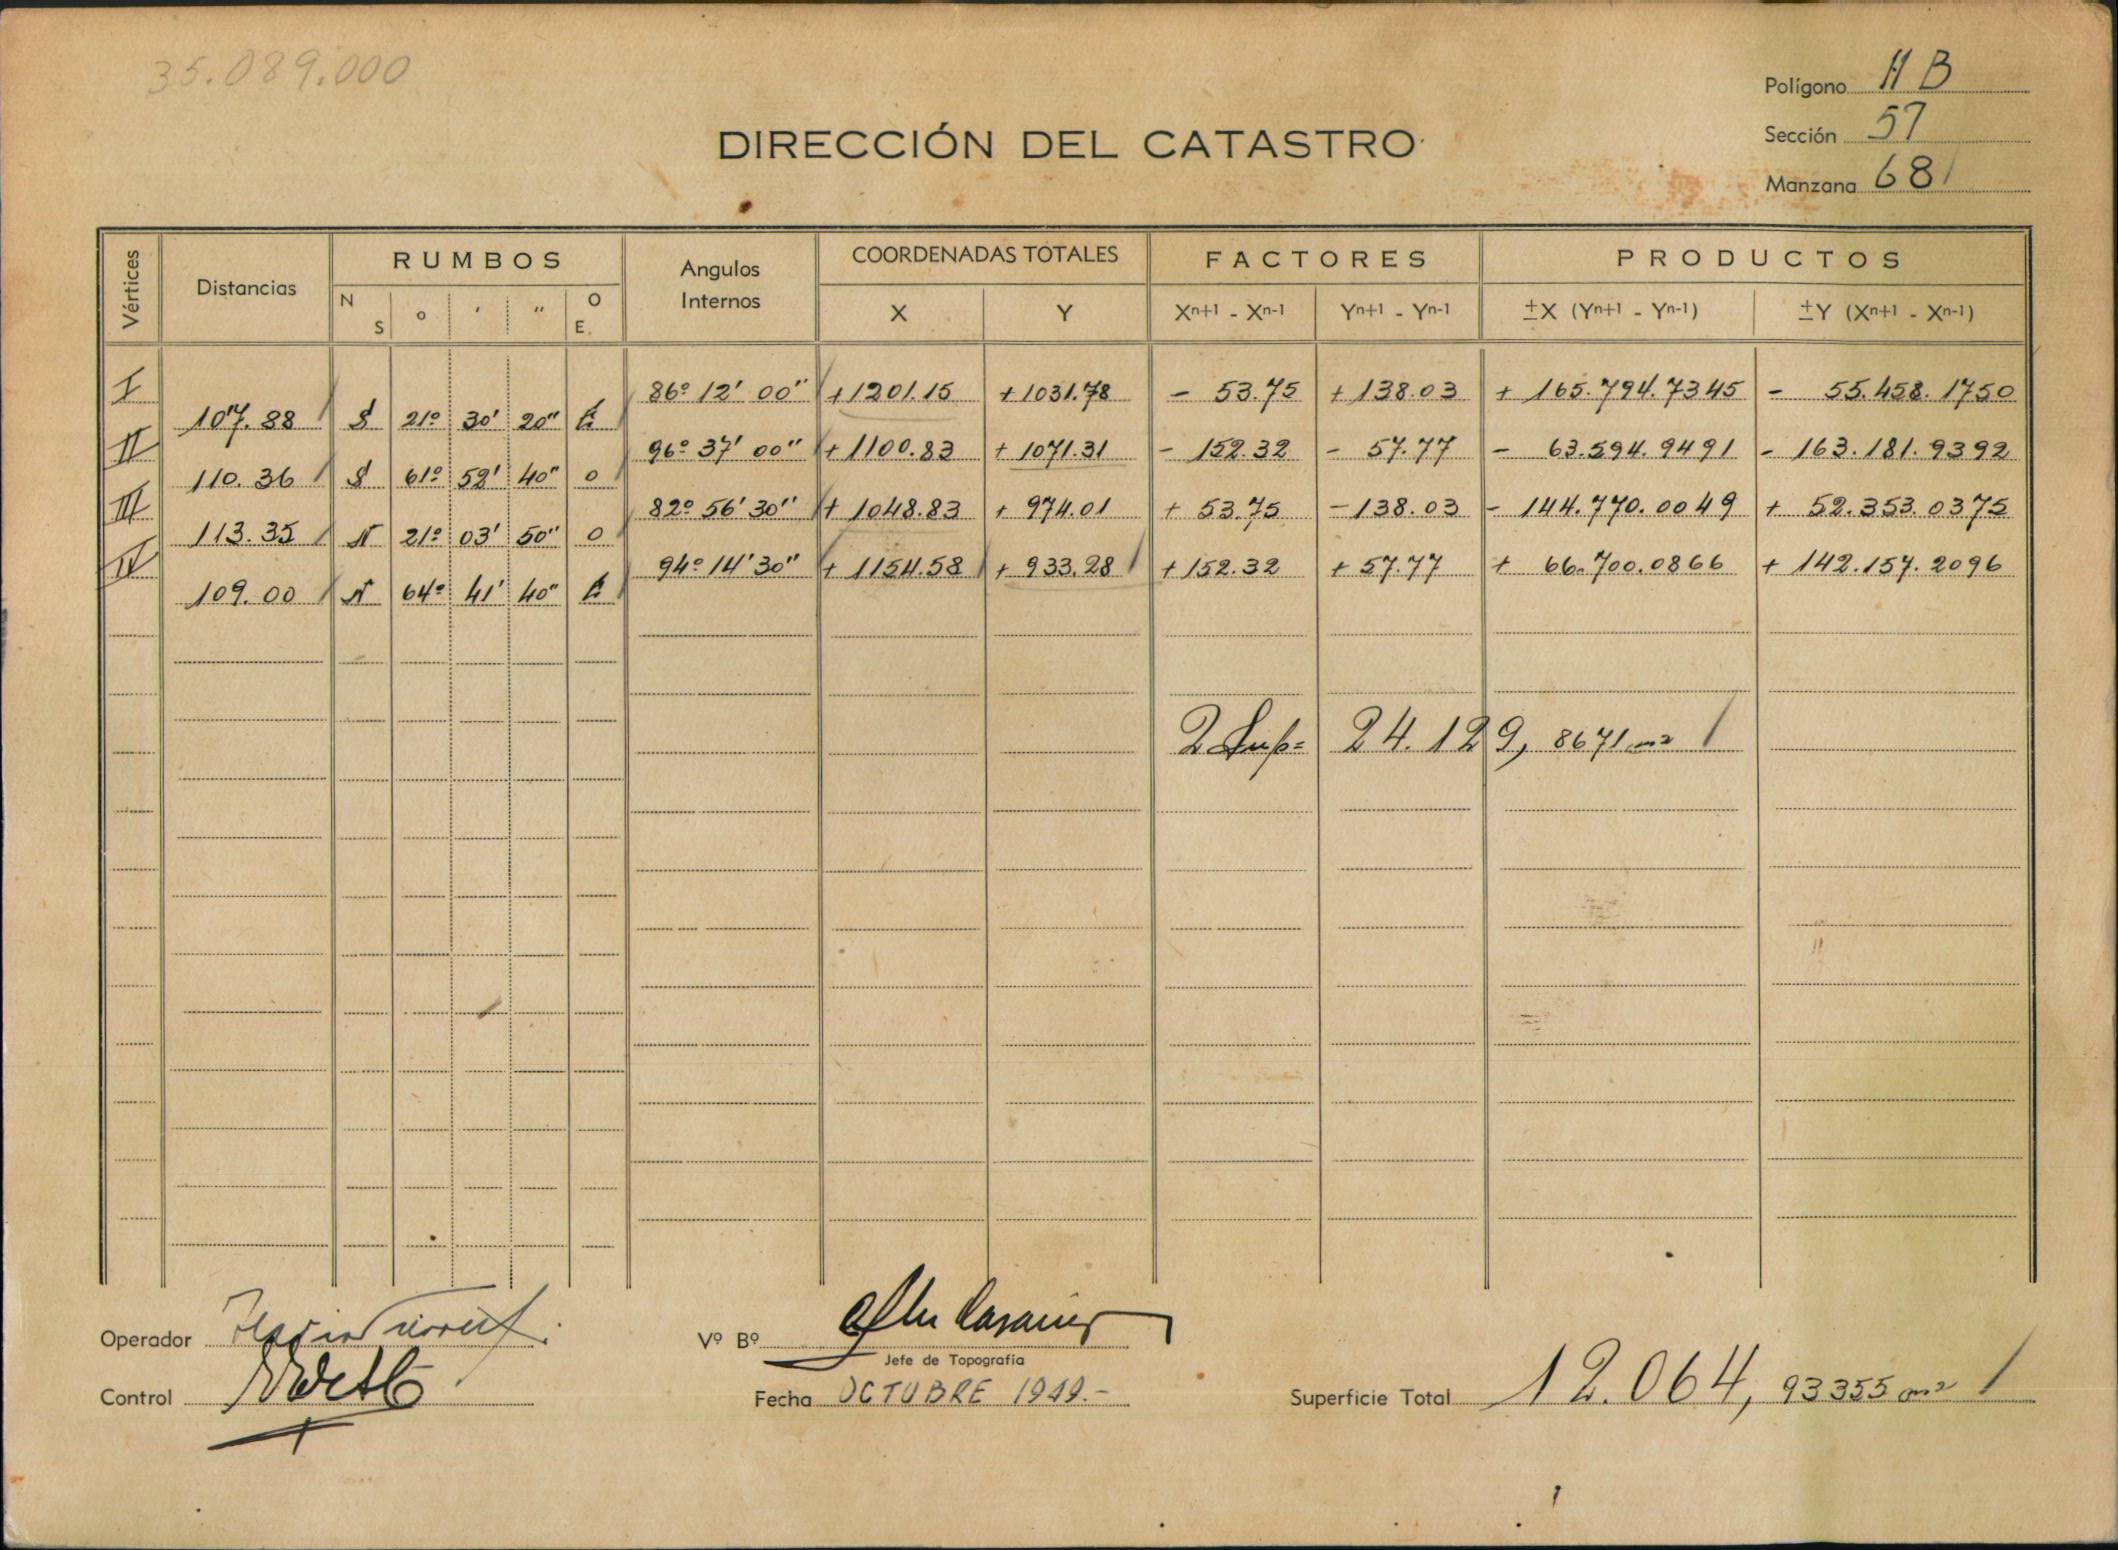 35.089.000
Polígono H B
Sección 57
Manzana 68
DIRECCIÓN DEL CATASTRO
Vértices Distancias RUMBOS Angulos Internos COORDENADAS TOTALES FACTORES PRODUCTOS
N S o ' " O E. X Y Xn+1 - Xn-1 Yn+1 - Yn-1 ±X (Yn+1 - Yn-1) ±Y (Xn+1 - Xn-1)
I 86º 12' 00" +1201.15 +1031.78 - 53.75 +138.03 + 165.794.7345 - 55.458.1750
107.88 S 21º 30' 20" E
II 96º 37' 00" +1100.83 +1071.31 - 152.32 - 57.77 - 63.594.9491 - 163.181.9392
110.36 S 61º 52' 40" O
III 82º 56' 30" + 1048.83 + 974.01 + 53.75 -138.03 - 144.770.0049 + 52.353.0375
113.35 N 21º 03' 50" O
IV 94º 14' 30" + 1154.58 + 933.28 +152.32 + 57.77 + 66.700.0866 + 142.157.2096
109.00 N 64º 41' 40" E
2 Sup= 24.129, 8671 m2
Operador
Vº Bº
Jefe de Topografía
Control
Fecha OCTUBRE 1949.-
Superficie Total 12.064, 93355 m2